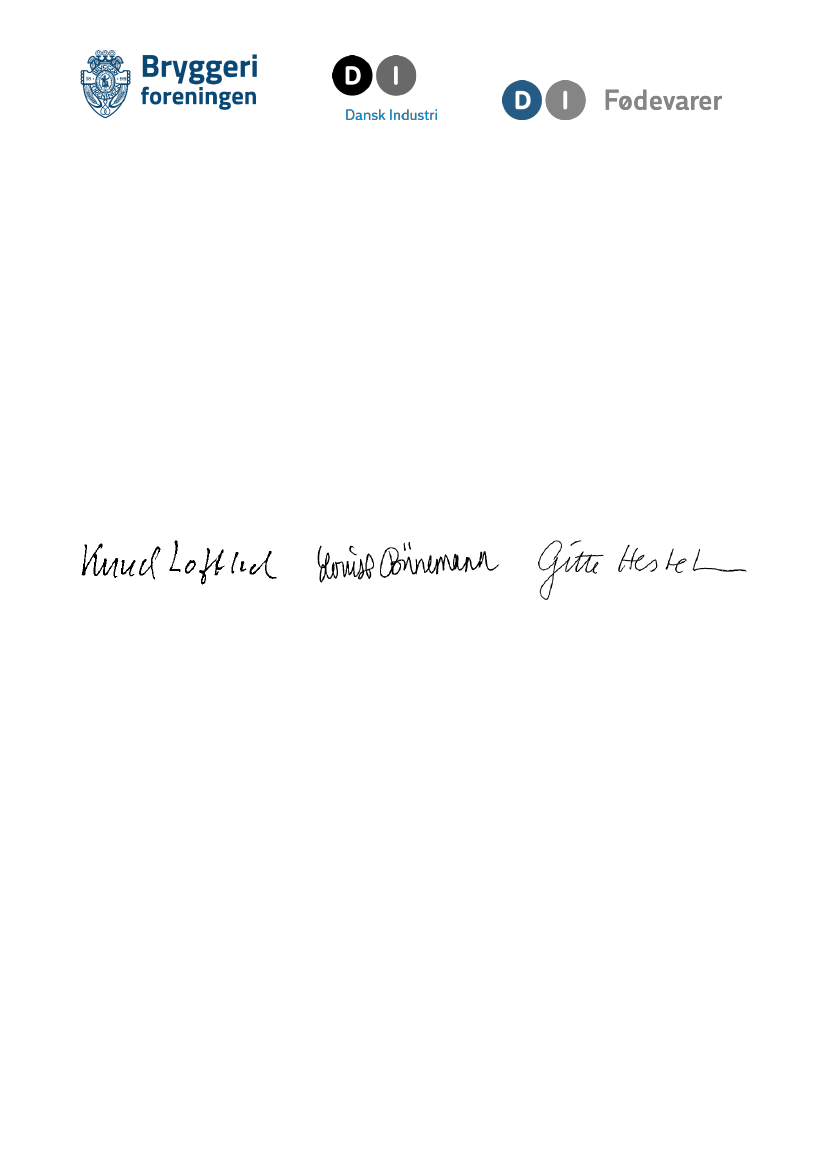 Bryggeri
foreningen
18 99
D I
Dansk Industri
D I Fødevarer
Knud Loftlid Louise Bünnemann Gitte Hestel